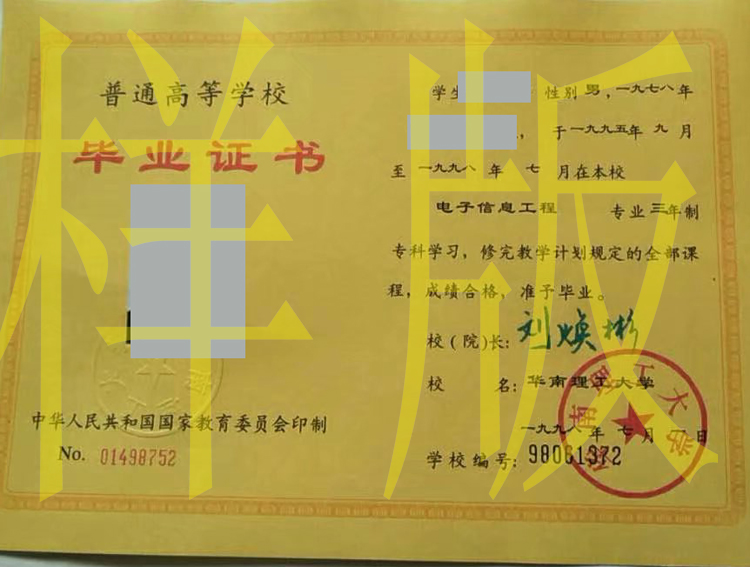 样版
普通高等学校
毕业证书
中华人民共和国国家教育委员会印制
No. 01498752
学生 性别 男，一九七八年
，于一九九五年 九 月
至 一九九八 年 七 月在本校
电子信息工程 专业 三年制
专科学习，修完教学计划规定的全部课
程，成绩合格，准予毕业。
校（院）长：刘焕彬
校 名：华南理工大学
一九九八 年 七 月 日
学校编号：98061372
华南理工大学